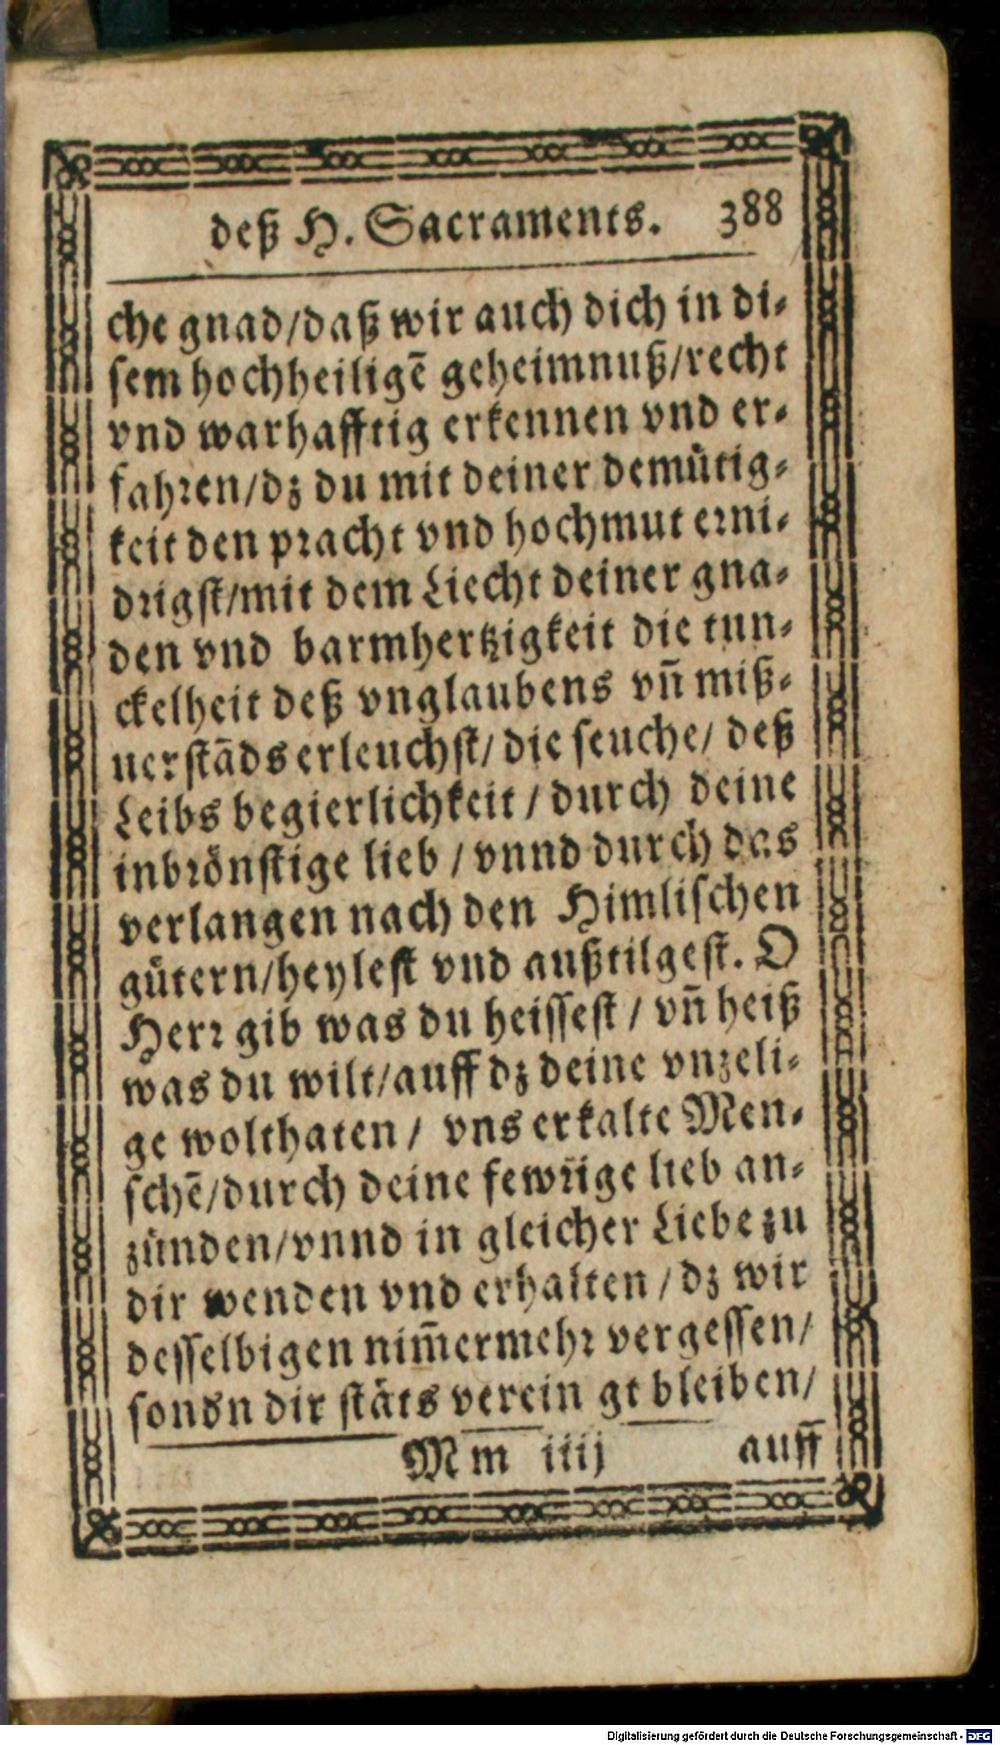 deß H. Sacraments. 388
che gnad/daß wir auch dich in di-
sem hochheiligē geheimnuß/recht
vnd warhafftig erkennen vnd er-
fahren/dz du mit deiner demütig-
keit den pracht vnd hochmut erni-
drigst/mit dem Liecht deiner gna-
den vnd barmhertzigkeit die tun-
ckelheit deß vnglaubens vn̄ miß-
uerstāds erleuchst/ die seuche/ deß
Leibs begierlichkeit / durch deine
inbrönstige lieb / vnnd durch das
verlangen nach den Himlischen
gütern/heylest vnd außtilgest. O
Herr gib was du heissest / vn̄ heiß
was du wilt/auff dz deine vnzeli-
ge wolthaten / vns erkalte Men-
schē/durch deine fewrige lieb an-
zünden/vnnd in gleicher Liebe zu
dir wenden vnd erhalten / dz wir
desselbigen nim̄ermehr vergessen/
sondn dir stäts verein gt bleiben/
Mm iiij auff
Digitalisierung gefördert durch die Deutsche Forschungsgemeinschaft - DFG